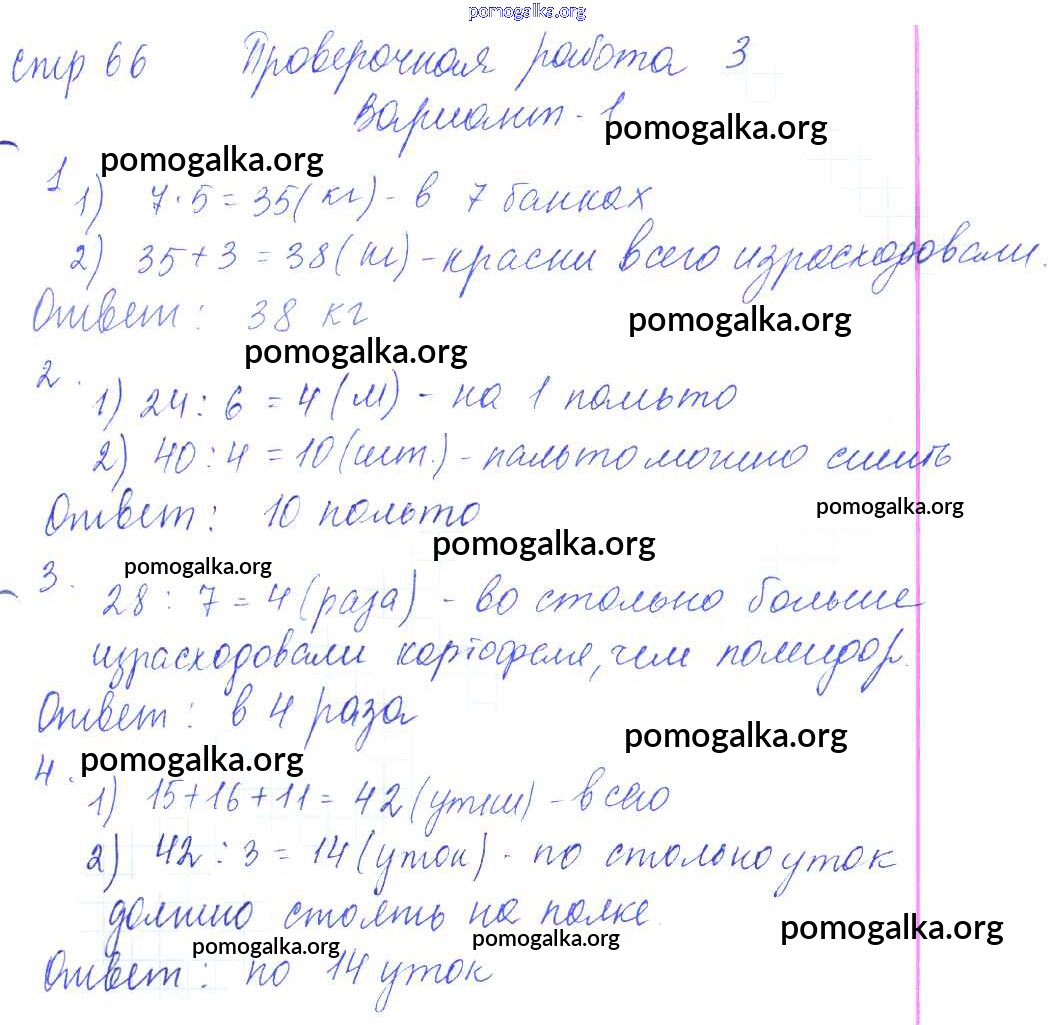 pomogalka.org
стр 66 Проверочная работа 3
Вариант - 1
pomogalka.org
pomogalka.org
1 1) 7 · 5 = 35 (кг) - в 7 банках
2) 35 + 3 = 38 (кг) - краски всего израсходовали.
Ответ: 38 кг
pomogalka.org
pomogalka.org
2. 1) 24 : 6 = 4 (м) - на 1 пальто
2) 40 : 4 = 10 (шт.) - пальто можно сшить
Ответ: 10 пальто
pomogalka.org
pomogalka.org
pomogalka.org
3. 28 : 7 = 4 (раза) - во столько больше
израсходовали картофеля, чем помидор.
Ответ: в 4 раза
pomogalka.org
pomogalka.org
4. 1) 15 + 16 + 11 = 42 (утки) - всего
2) 42 : 3 = 14 (уток) - по столько уток
должно стоять на полке.
pomogalka.org
pomogalka.org
pomogalka.org
Ответ: по 14 уток